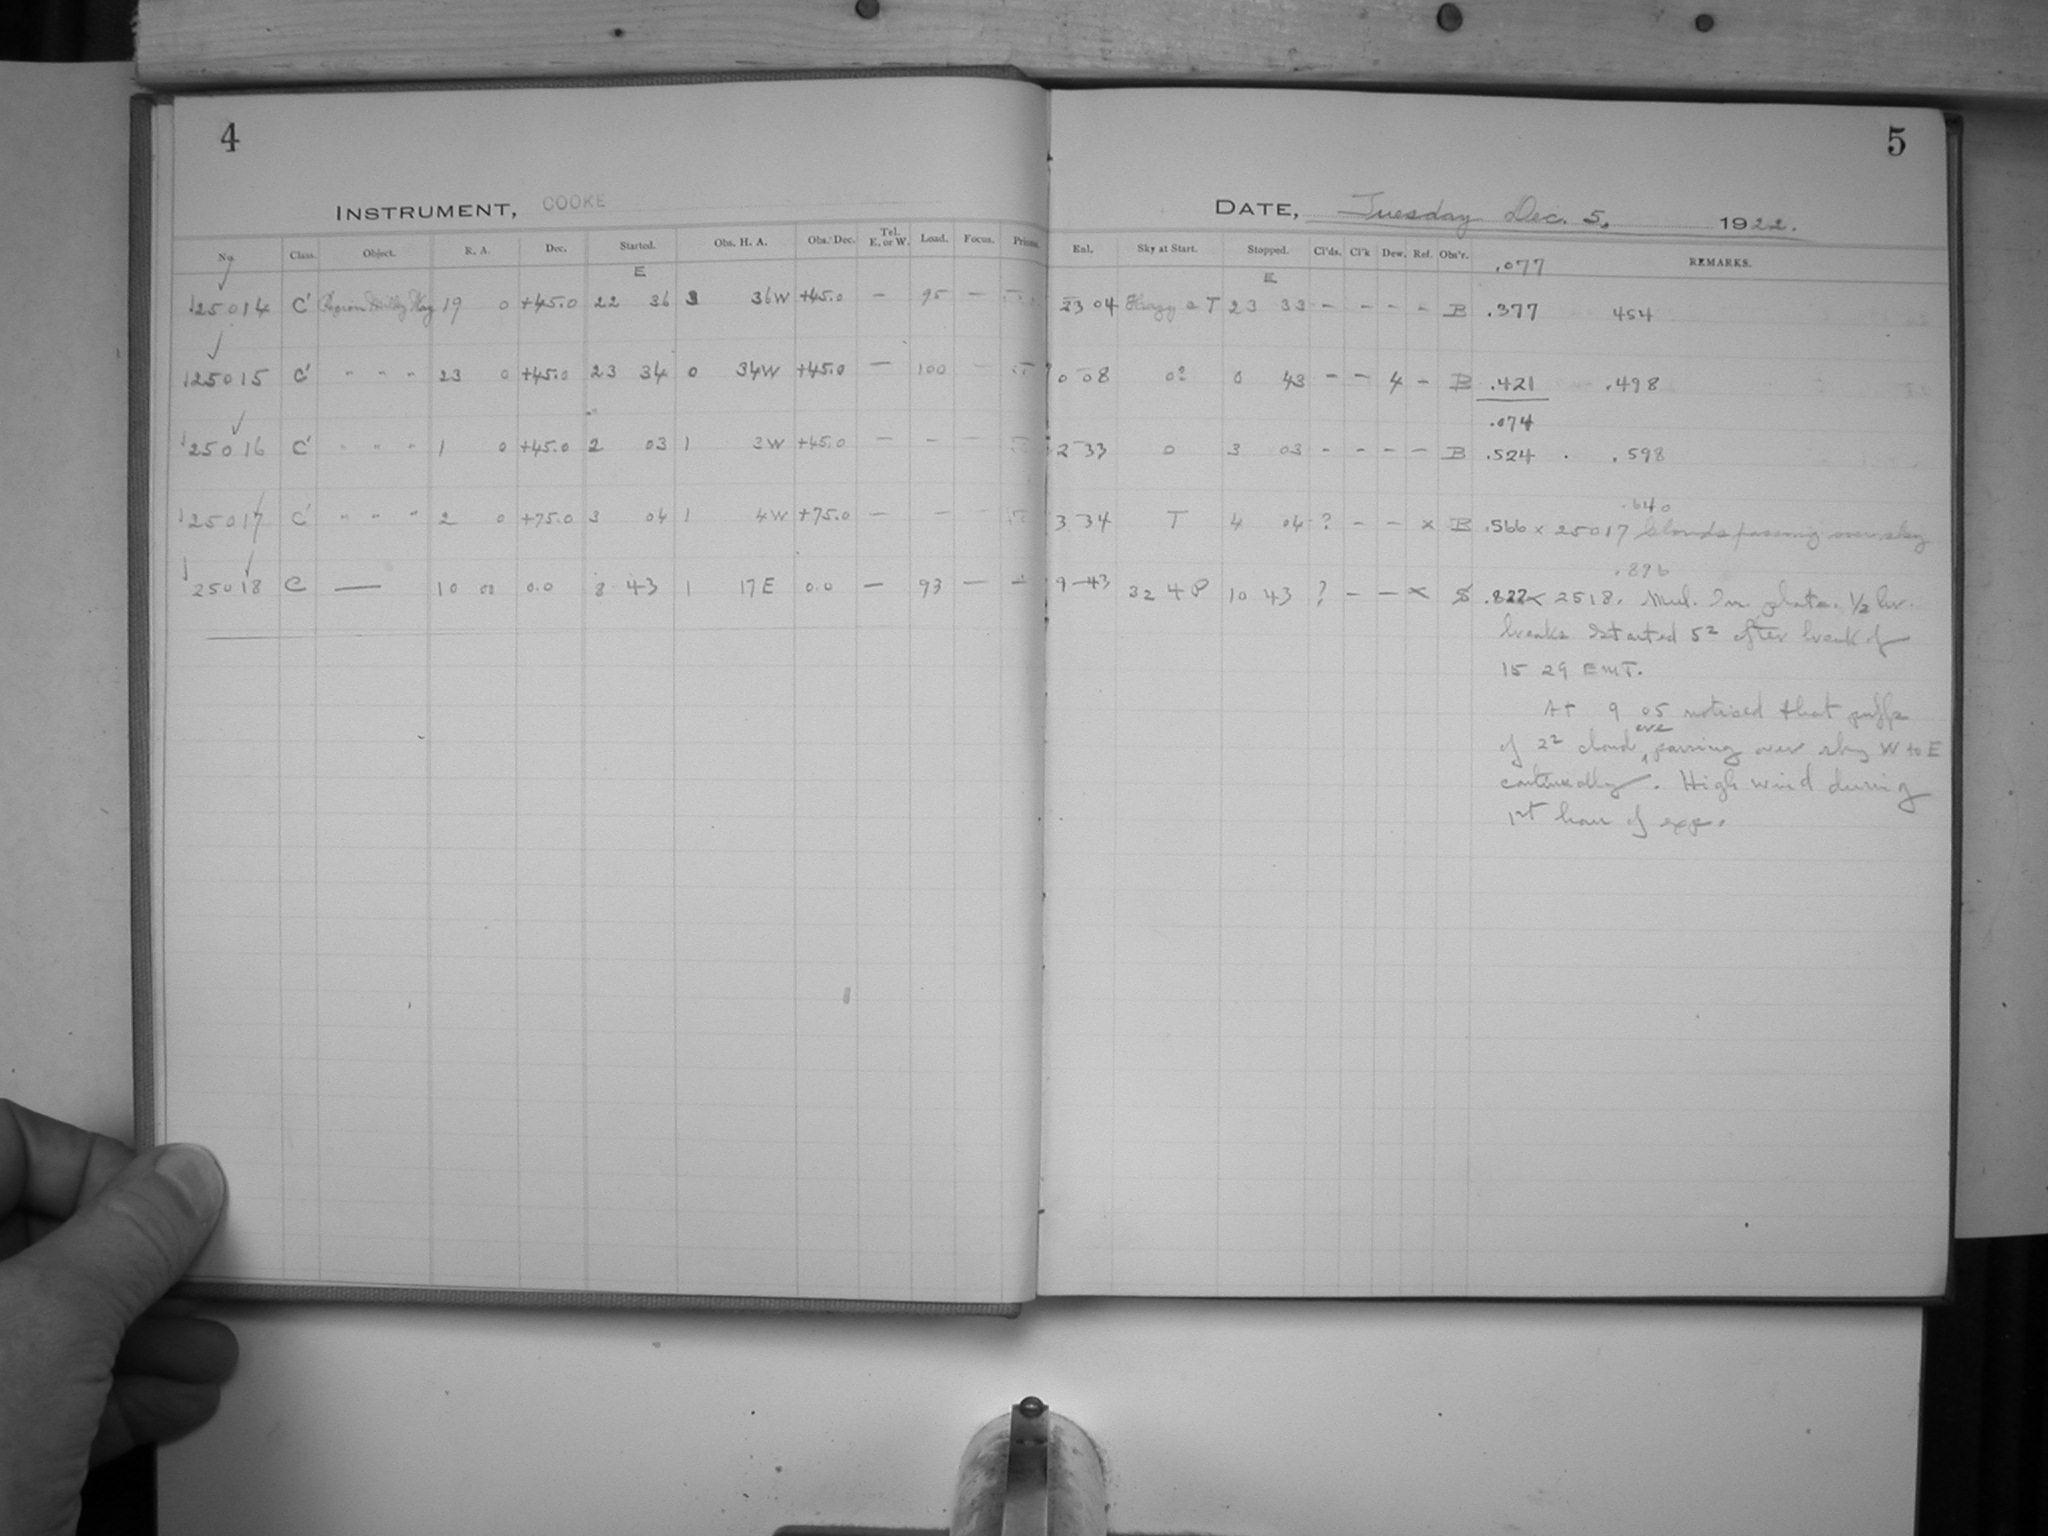 4
INSTRUMENT, COOKE
No. Class. Object. R. A. Dec. Started. Obs. H. A. Obs. Dec. Tel. E. or W. Load. Focus. Prisms.
E
25014 C' Milky Way 19 0 +45.0 22 36 3 36W +45.0 — 95 —
25015 C' " " " 23 0 +45.0 23 34 0 34W +45.0 — 100 —
25016 C' " " " 1 0 +45.0 2 03 1 3W +45.0 — — —
25017 C' " " " 2 0 +75.0 3 04 1 4W +75.0 — — —
25018 C — 10 00 0.0 8 43 1 17E 0.0 — 93 — —
5
DATE, Tuesday Dec. 5, 1922.
Eal. Sky at Start. Stopped. Cl'ds. Cl'k Dew. Ref. Obs'r. REMARKS.
E .077
23 04 Hazy & T 23 33 - - - - B .377 454
0 08 0² 0 43 - - 4 - B .421 .498
.074
2 33 0 3 03 - - - - B .524 . .598
.640
3 34 T 4 04 ? - - x B .566 x 25017 Clouds passing over sky
.896
9 43 3² 4 P 10 43 ? - - x S .822 x 2518. Mul. Im. plate. 1/2 hr.
breaks started 5² after break of
15 29 EMT.
At 9 05 noticed that puffs
of 2² cloud are passing over sky W to E
continually. High wind during
1st hour of exp.